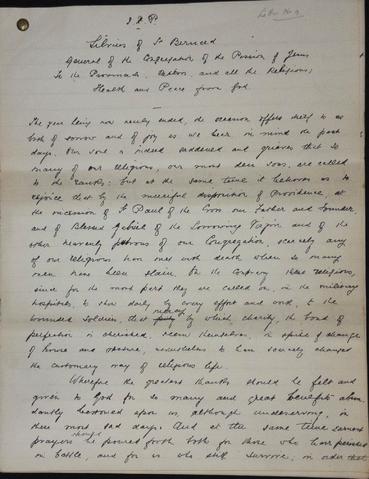 J. X. P.
Letter No 9
Silvius of St Bernard
General of the Congregation of the Passion of Jesus
To the Provincials, Rectors, and all the Religious;
Health and Peace from God.
The year being now nearly ended, the occasion offers itself to us
both of sorrow and of joy as we bear in mind the past
days. Our soul is indeed saddened and grieves that so
many of our religious, our most dear sons, are called
to the ranks: but at the same time it behoves us to
rejoice that by the merciful disposition of Providence, at
the intercession of St Paul of the Cross our Father and Founder,
and of Blessed Gabriel of the Sorrowing Virgin and of the
other heavenly patrons of our Congregation, scarcely any
of our religious have met with death when so many
men have been slain. On the contrary these religious,
since for the most part they are called on, in the military
hospitals, to show daily by every effort and work, to the
wounded soldiers, that mercy by which charity, the bond of
perfection is cherished, seem themselves, in spite of change
of house and vesture, nevertheless to have scarcely changed
the customary way of religious life.
Wherefore the greatest thanks should be felt and
given to God for so many and great benefits abun-
dantly bestowed upon us, although undeserving, in
these most sad days. And at the same time earnest
prayers should be poured forth both for those who have perished
in battle, and for us who still survive, in order that